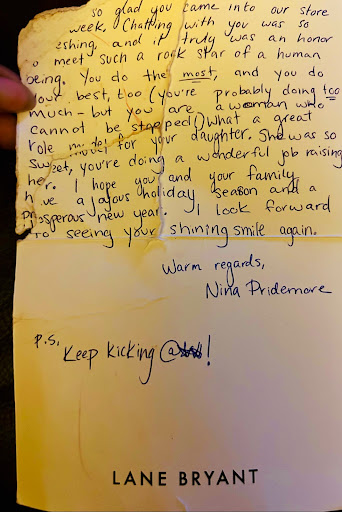 so glad you came into our store
week. Chatting with you was so
eshing, and it truly was an honor
o meet such a rock star of a human
being. You do the most, and you do
your best, too (you're probably doing too
much - but you are a woman who
cannot be stopped) What a great
role model for your daughter. She was so
sweet, you're doing a wonderful job raising
her. I hope you and your family
have a joyous holiday season and a
prosperous new year. I look forward
to seeing your shining smile again.
Warm regards,
Nina Pridemore
P.S.
Keep kicking @!
LANE BRYANT